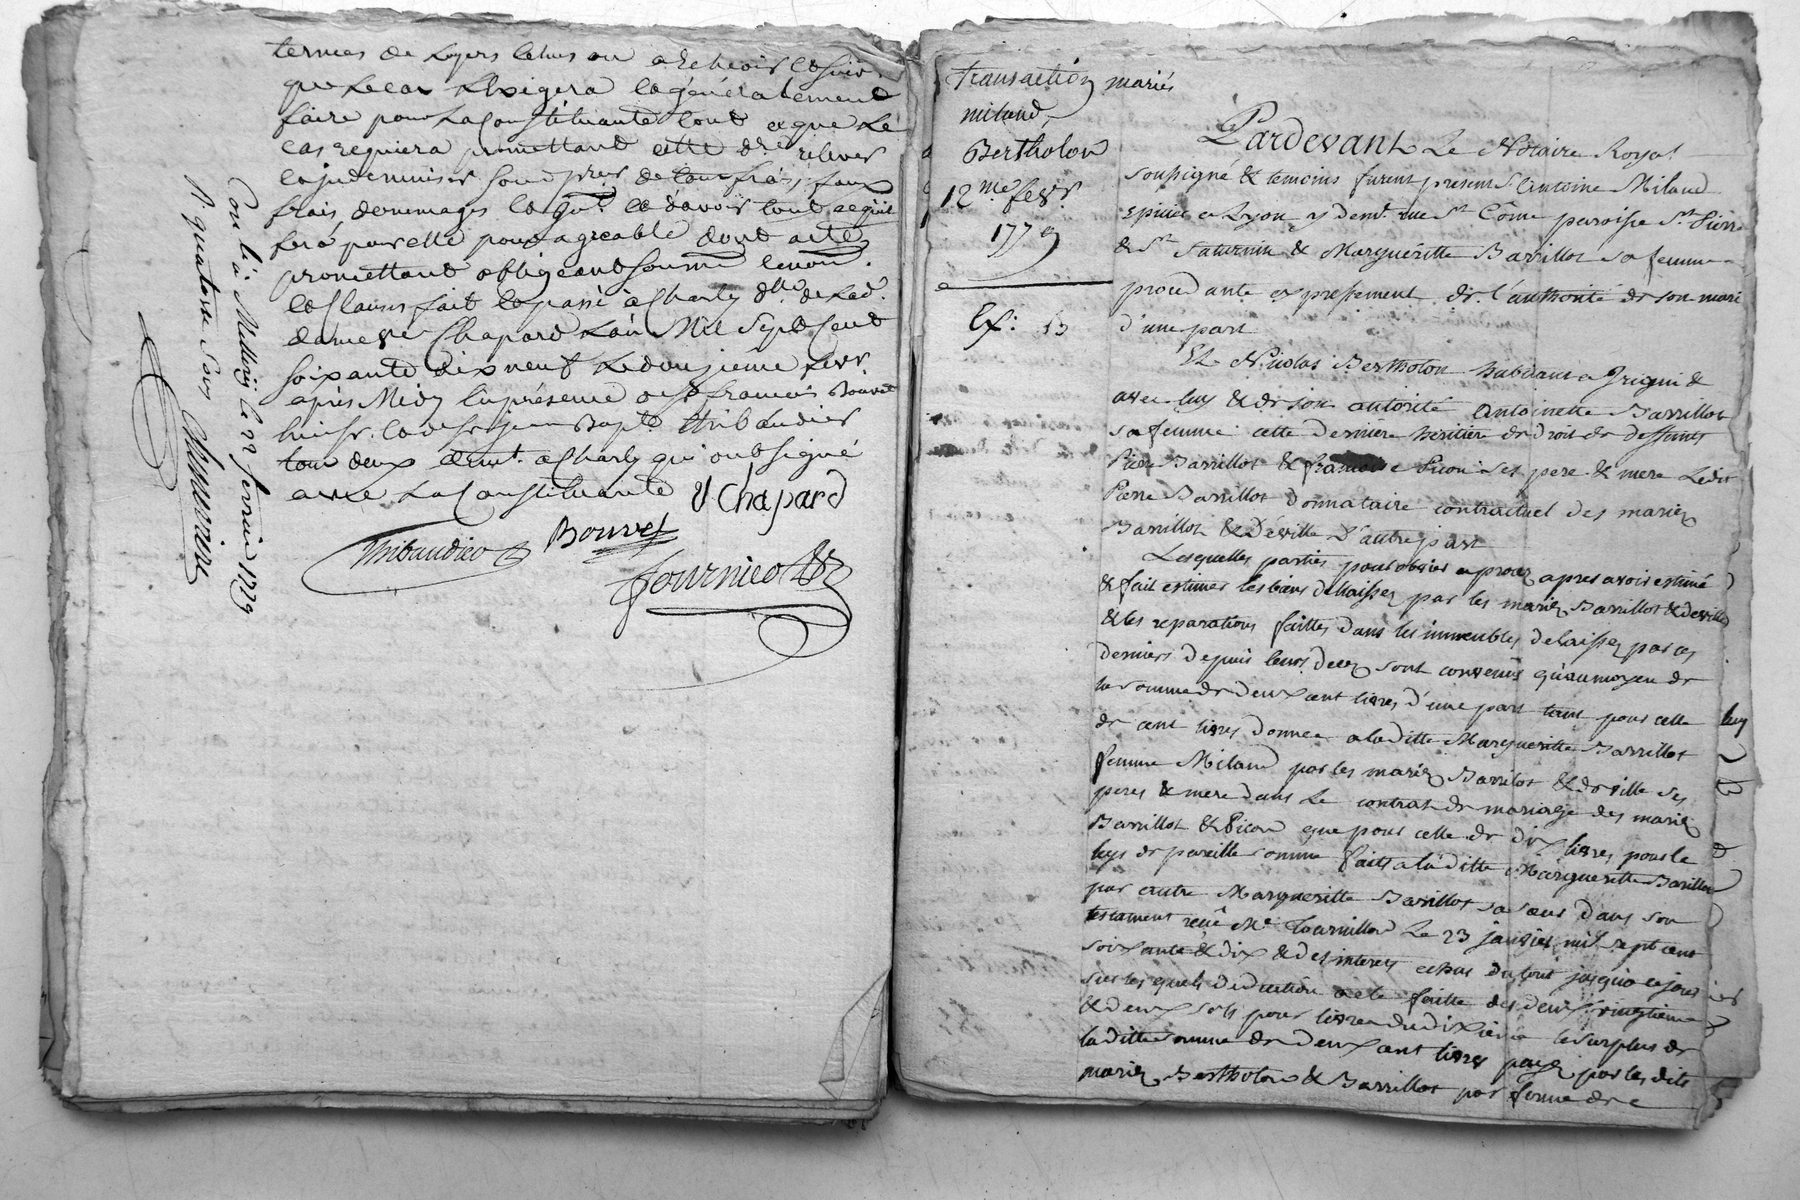 termes de Loyers Echus ou a Echeoir
que Le cas Exigera & généralement
faire pour La Constituante tout ce que Le
cas requiera promettant
frais, dommages
fera par elle pour agreable dont acte
promettant obligeant soumett renon.
& Clauses fait & passé à Charly
Chapard L'an Mil Sept Cent
soixante dix neuf Le douzième fevr.
après Midy En présence de Sr françois Bouvet
huissr. & de Sr jean Bapte. Thibaudier
tous deux demt. a Charly qui ont signé
avec La Constituante E Chapard
Thibaudier Bouvet
fournier
Con lé à Millery le 22 fevrier 1779
R. quatorze Sous
transaction mariés
miland
Bertholon
12me. fevr.
1779
Ex:
Pardevant Le Notaire Royal
soussigné & temoins furent presents Antoine Miland
Epicier a Lyon y demt. rue St Côme paroisse St Pierre
& St Saturnin & Marguéritte Barrillot sa femme
procedante expressement de l'authorité de son mari
d'une part
Et Nicolas Bertholon habitant a Grigni &
avec luy & de son autorité Antoinette Barrillot
sa femme cette derniere heritière de droit de deffunts
Pierre Barrillot & françoise Picon ses pere & mere Ledit
Pierre Barrillot donnataire contractuel des mariez
Barrillot & Déville d'autre part
Lesquelles parties pour obvier a procez apres avoir estimé
& fait estimer les biens dellaissez par les mariez Barrillot & deville
& les reparations faittes dans les immeubles delaissez par ces
derniers depuis leurs decez sont convenus qu'au moyen de
la somme de deux cent livres d'une part tant pour celle
de cent livres donnée a laditte Marguéritte Barrillot
femme Miland par les mariez Barrillot & deville ses
peres & mere dans Le contrat de mariage des mariez
Barrillot & Picon que pour celle de dix livres pour le
legs de pareille somme fait a laditte Marguéritte Barillot
par autre Marguéritte Barillot sa sœur dans son
testament reçû Me. Le 23 janvier mil sept cent
soixante & dix & des interets echus du tout jusqu'a ce jour
sur lesquels deduction a été faitte des deux vingtieme
& deux sols pour livre du dixieme le surplus de
laditte somme de deux cent livres payé par les dits
mariez Bertholon & Barrillot par forme de